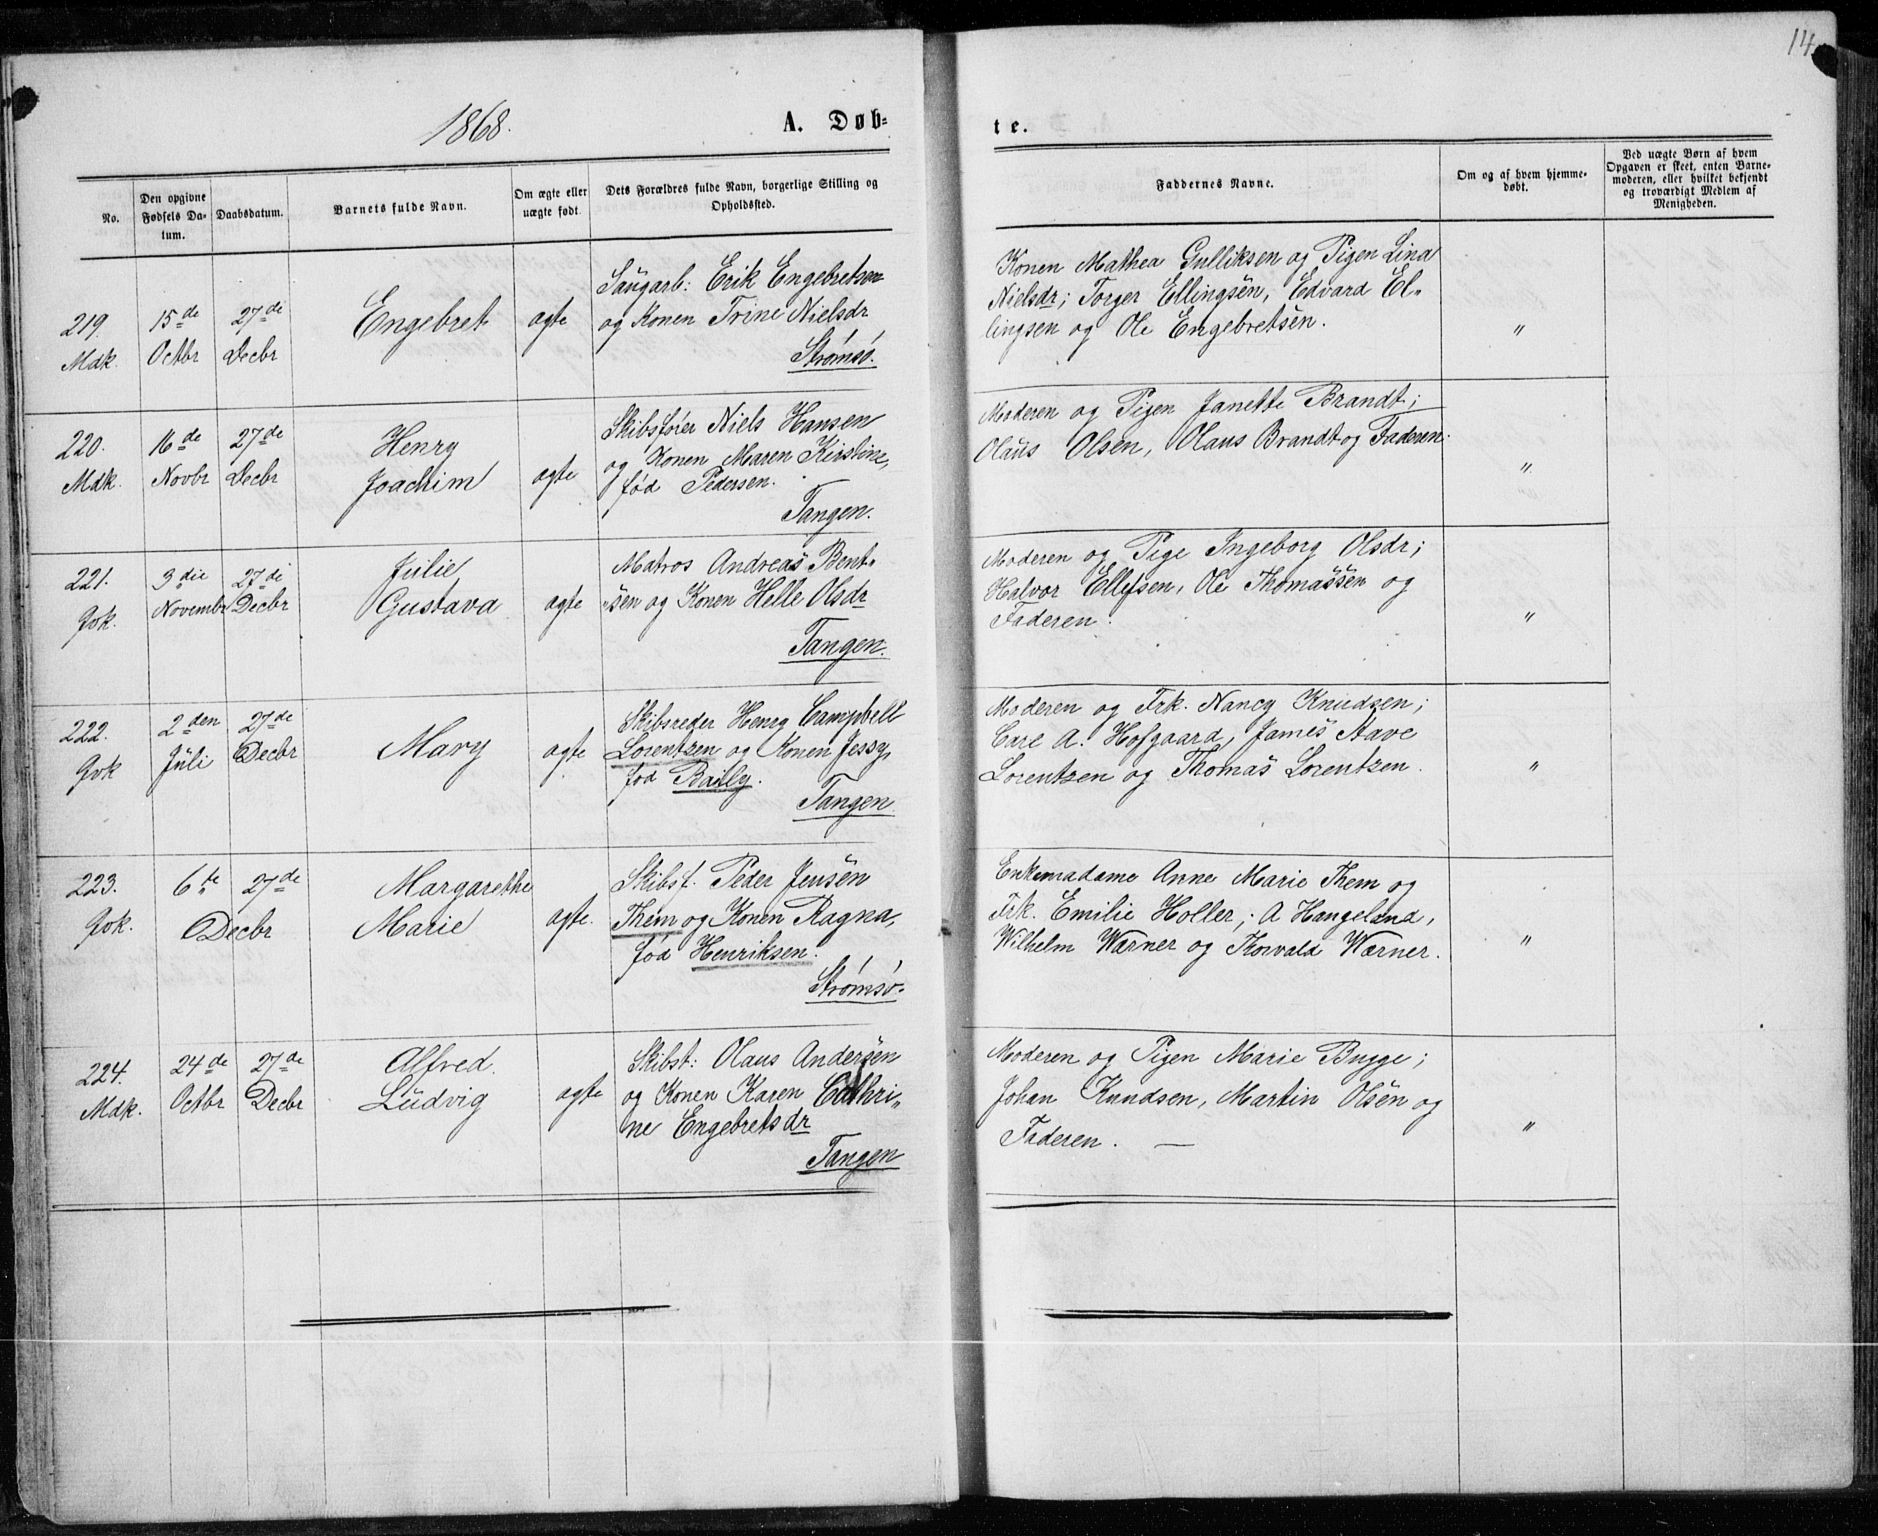 14.
1868. A. Døb=
te.
No.
Den opgivne Fødsels Da-
tum.
Daabsdatum.
Barnets fulde Navn.
Om ægte eller
uægte født.
Dets Forældres fulde Navn, borgerlige Stilling og
Opholdssted.
Faddernes Navne.
Om og af hvem hjemme-
døbt.
Ved uægte Børn af hvem
Opgaven er skeet, enten Barne-
moderen, eller hvilket bekjendt
og troværdigt Medlem af
Menigheden.
219.
Mdk.
15de
Octbr
27de
Decbr
Engebret
ægte
Saugarb: Erik Engebretsen
og Konen Trine Nielsdr
Strømsø.
Konen Mathea Gulliksen og Pigen Lina
Nielsdr; Torger Ellingsen, Edvard El-
lingsen og Ole Engebretsen.
"
220.
Mdk.
16de
Novbr
27de
Decbr
Henry
Joachim
ægte
Skibsfører Niels Hansen
og Konen Maren Kirstine,
fød Pedersen.
Tangen.
Moderen og Pigen Janette Brandt;
Olaus Olsen, Olaus Brandt og Faderen.
"
221.
Gvk.
3die
Novembr
27de
Decbr
Julie
Gustava
ægte
Matros Andreas Bent-
sen og Konen Helle Olsdr
Tangen.
Moderen og Pige Ingeborg Olsdr;
Halvor Ellefsen, Ole Thomassen og
Faderen.
"
222.
Gvk
2den
Juli
27de
Decbr
Mary
ægte
Skibsreder Henry Campbell
Lorentzen og Konen Jessy,
fød Bailly.
Tangen.
Moderen og Frk. Nancy Knudsen;
Carl A. Hofgaard, James Aave
Lorentzen og Thomas Lorentzen.
"
223.
Gvk.
6te 27de
Decbr
Margarethe
Marie
ægte.
Skibsf. Peder Jensen
Them og Konen Ragna,
fød Henriksen.
Strømsø.
Enkemadame Anne Marie Them og
Frk. Emilie Holler; A Hangeland,
Wilhelm Wærner og Thorvald Wærner.
"
224.
Mdk.
24de
Octbr
27de
Decbr
Alfred.
Ludvig
ægte
Skibst: Olaus Andersen
og Konen Karen Cathri-
ne Engebretsdr
Tangen
Moderen og Pigen Marie Bugge;
Johan Knudsen, Martin Olsen og
Faderen. —
"